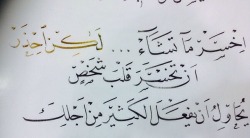 اخسر ما تشاء ... لكن احذر
أن تخسر قلب شخص
يحاول أن يفعل الكثير من أجلك